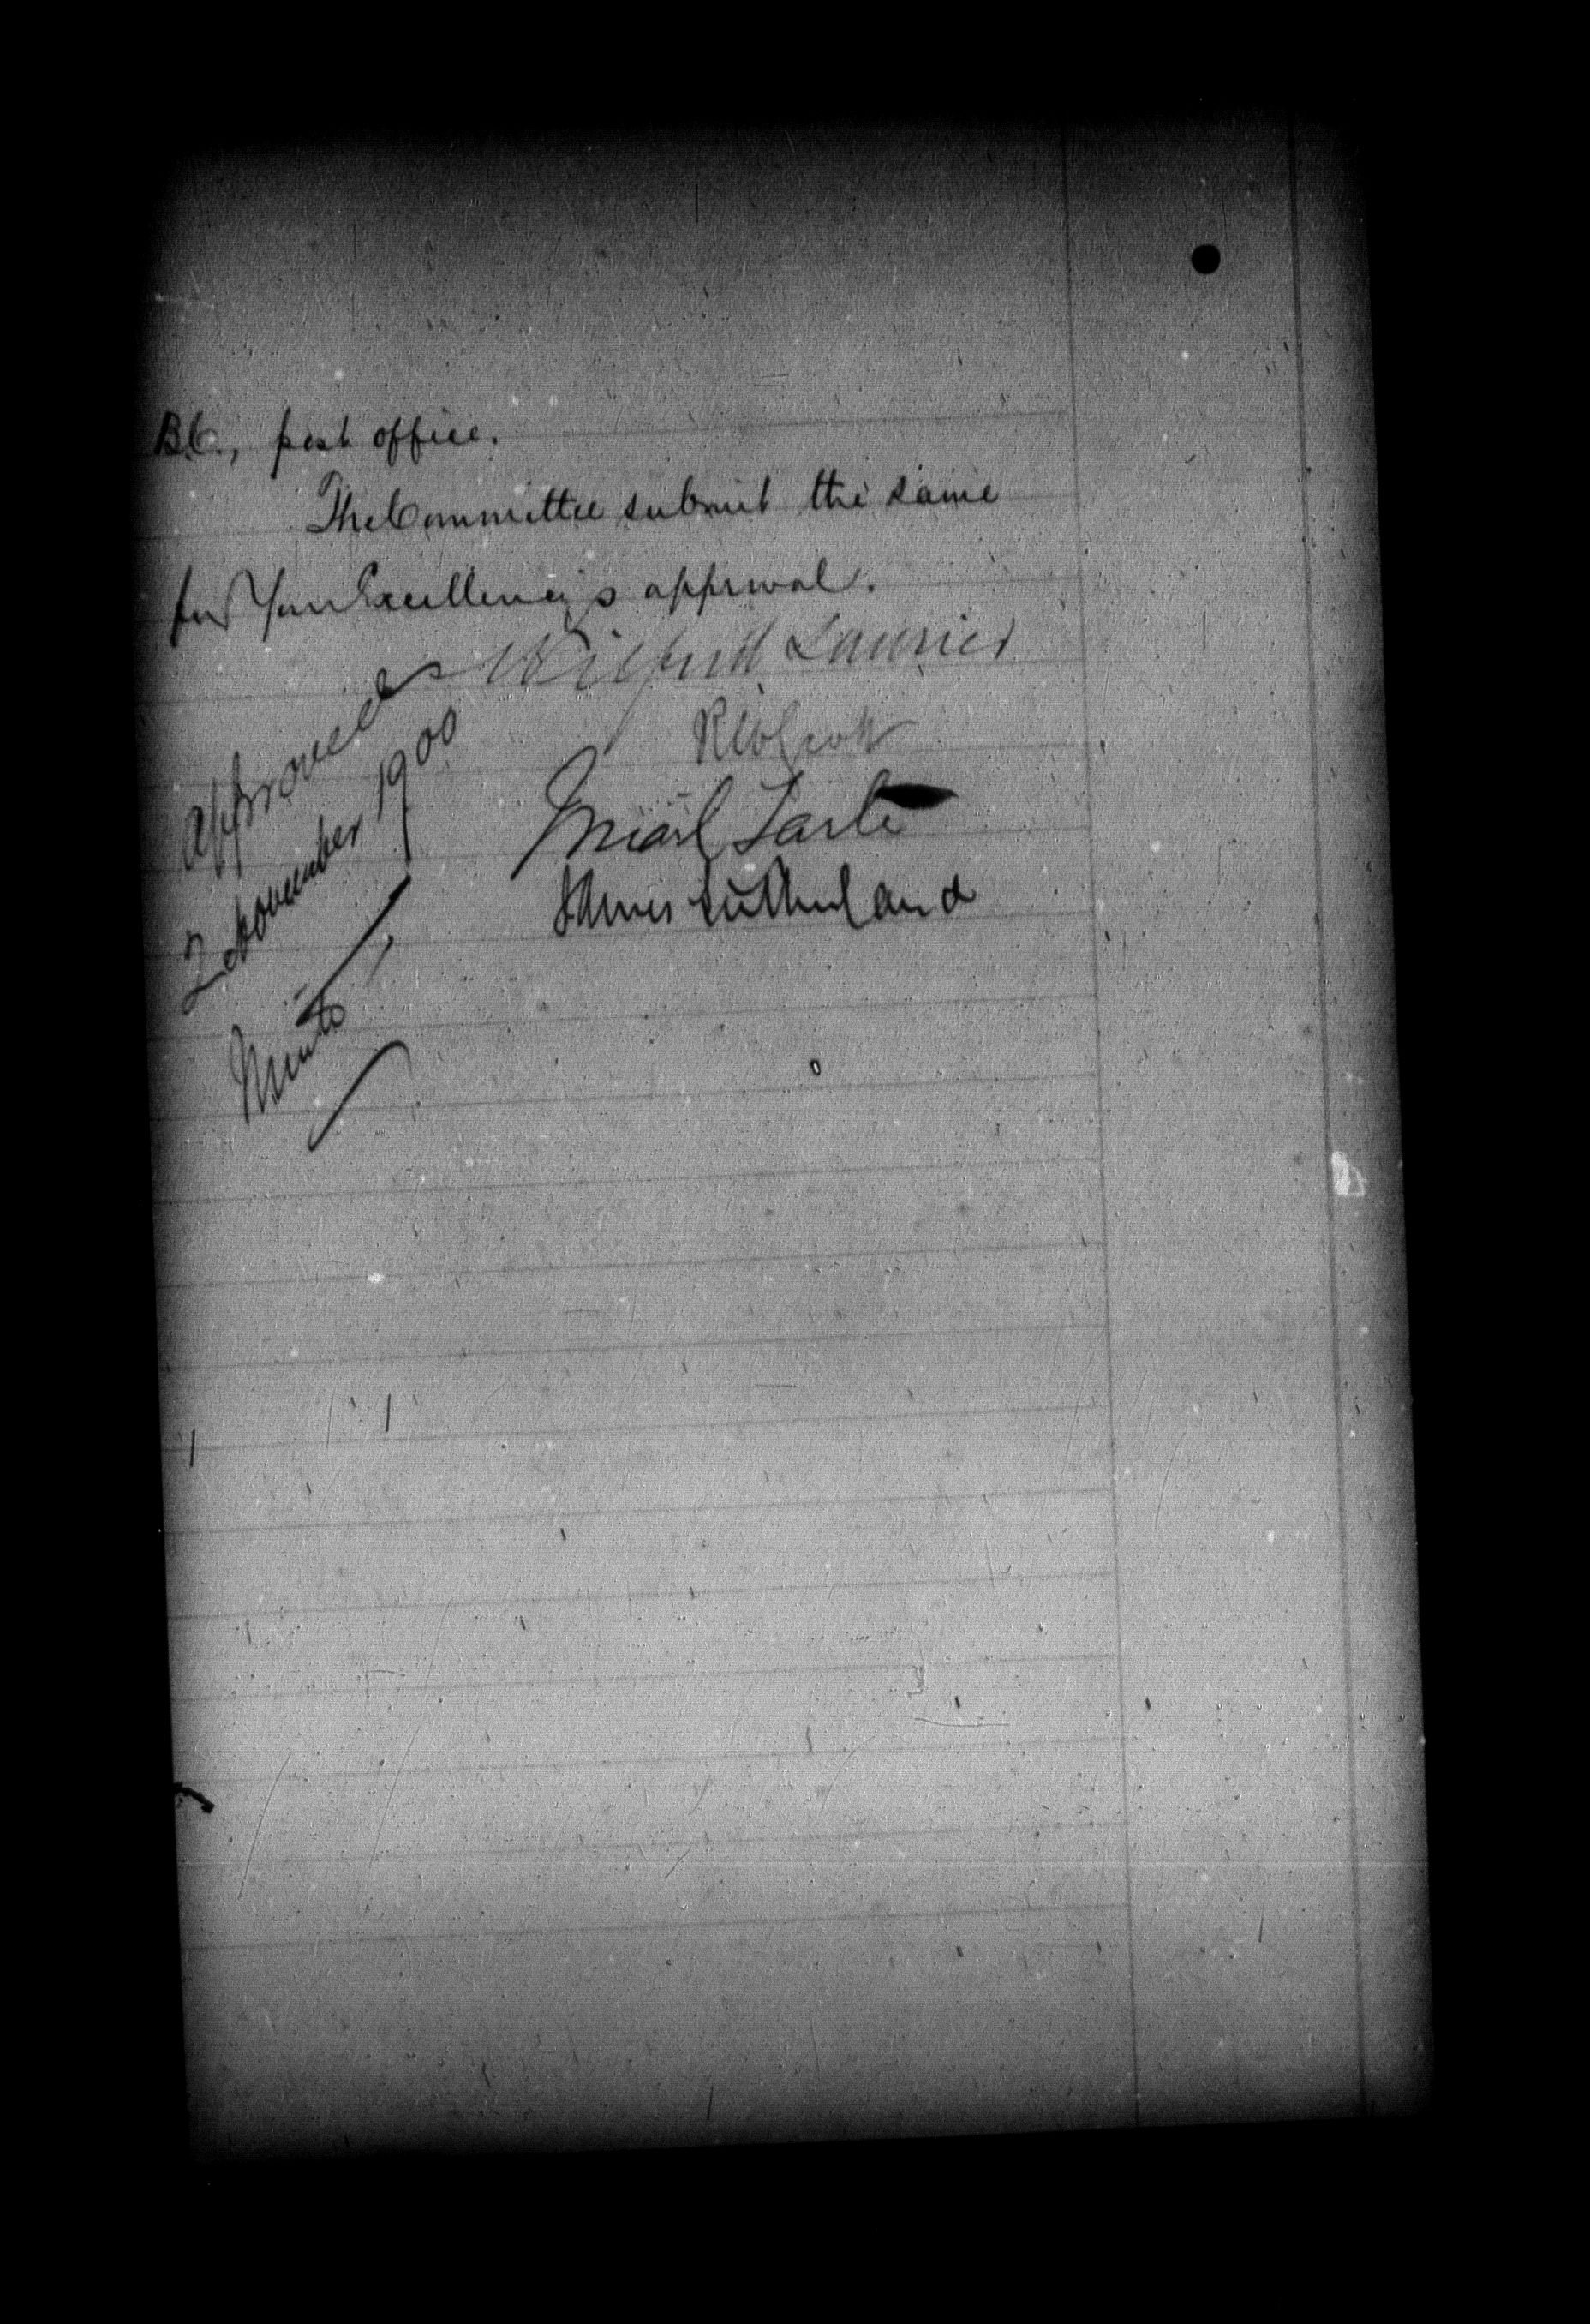 B.C., post office.
The Committee submit the same
for Your Excellency's approval.
Wilfrid Laurier
RWScott
J Israel Tarte
James Sutherland
Approved
2 November 1900
Minto